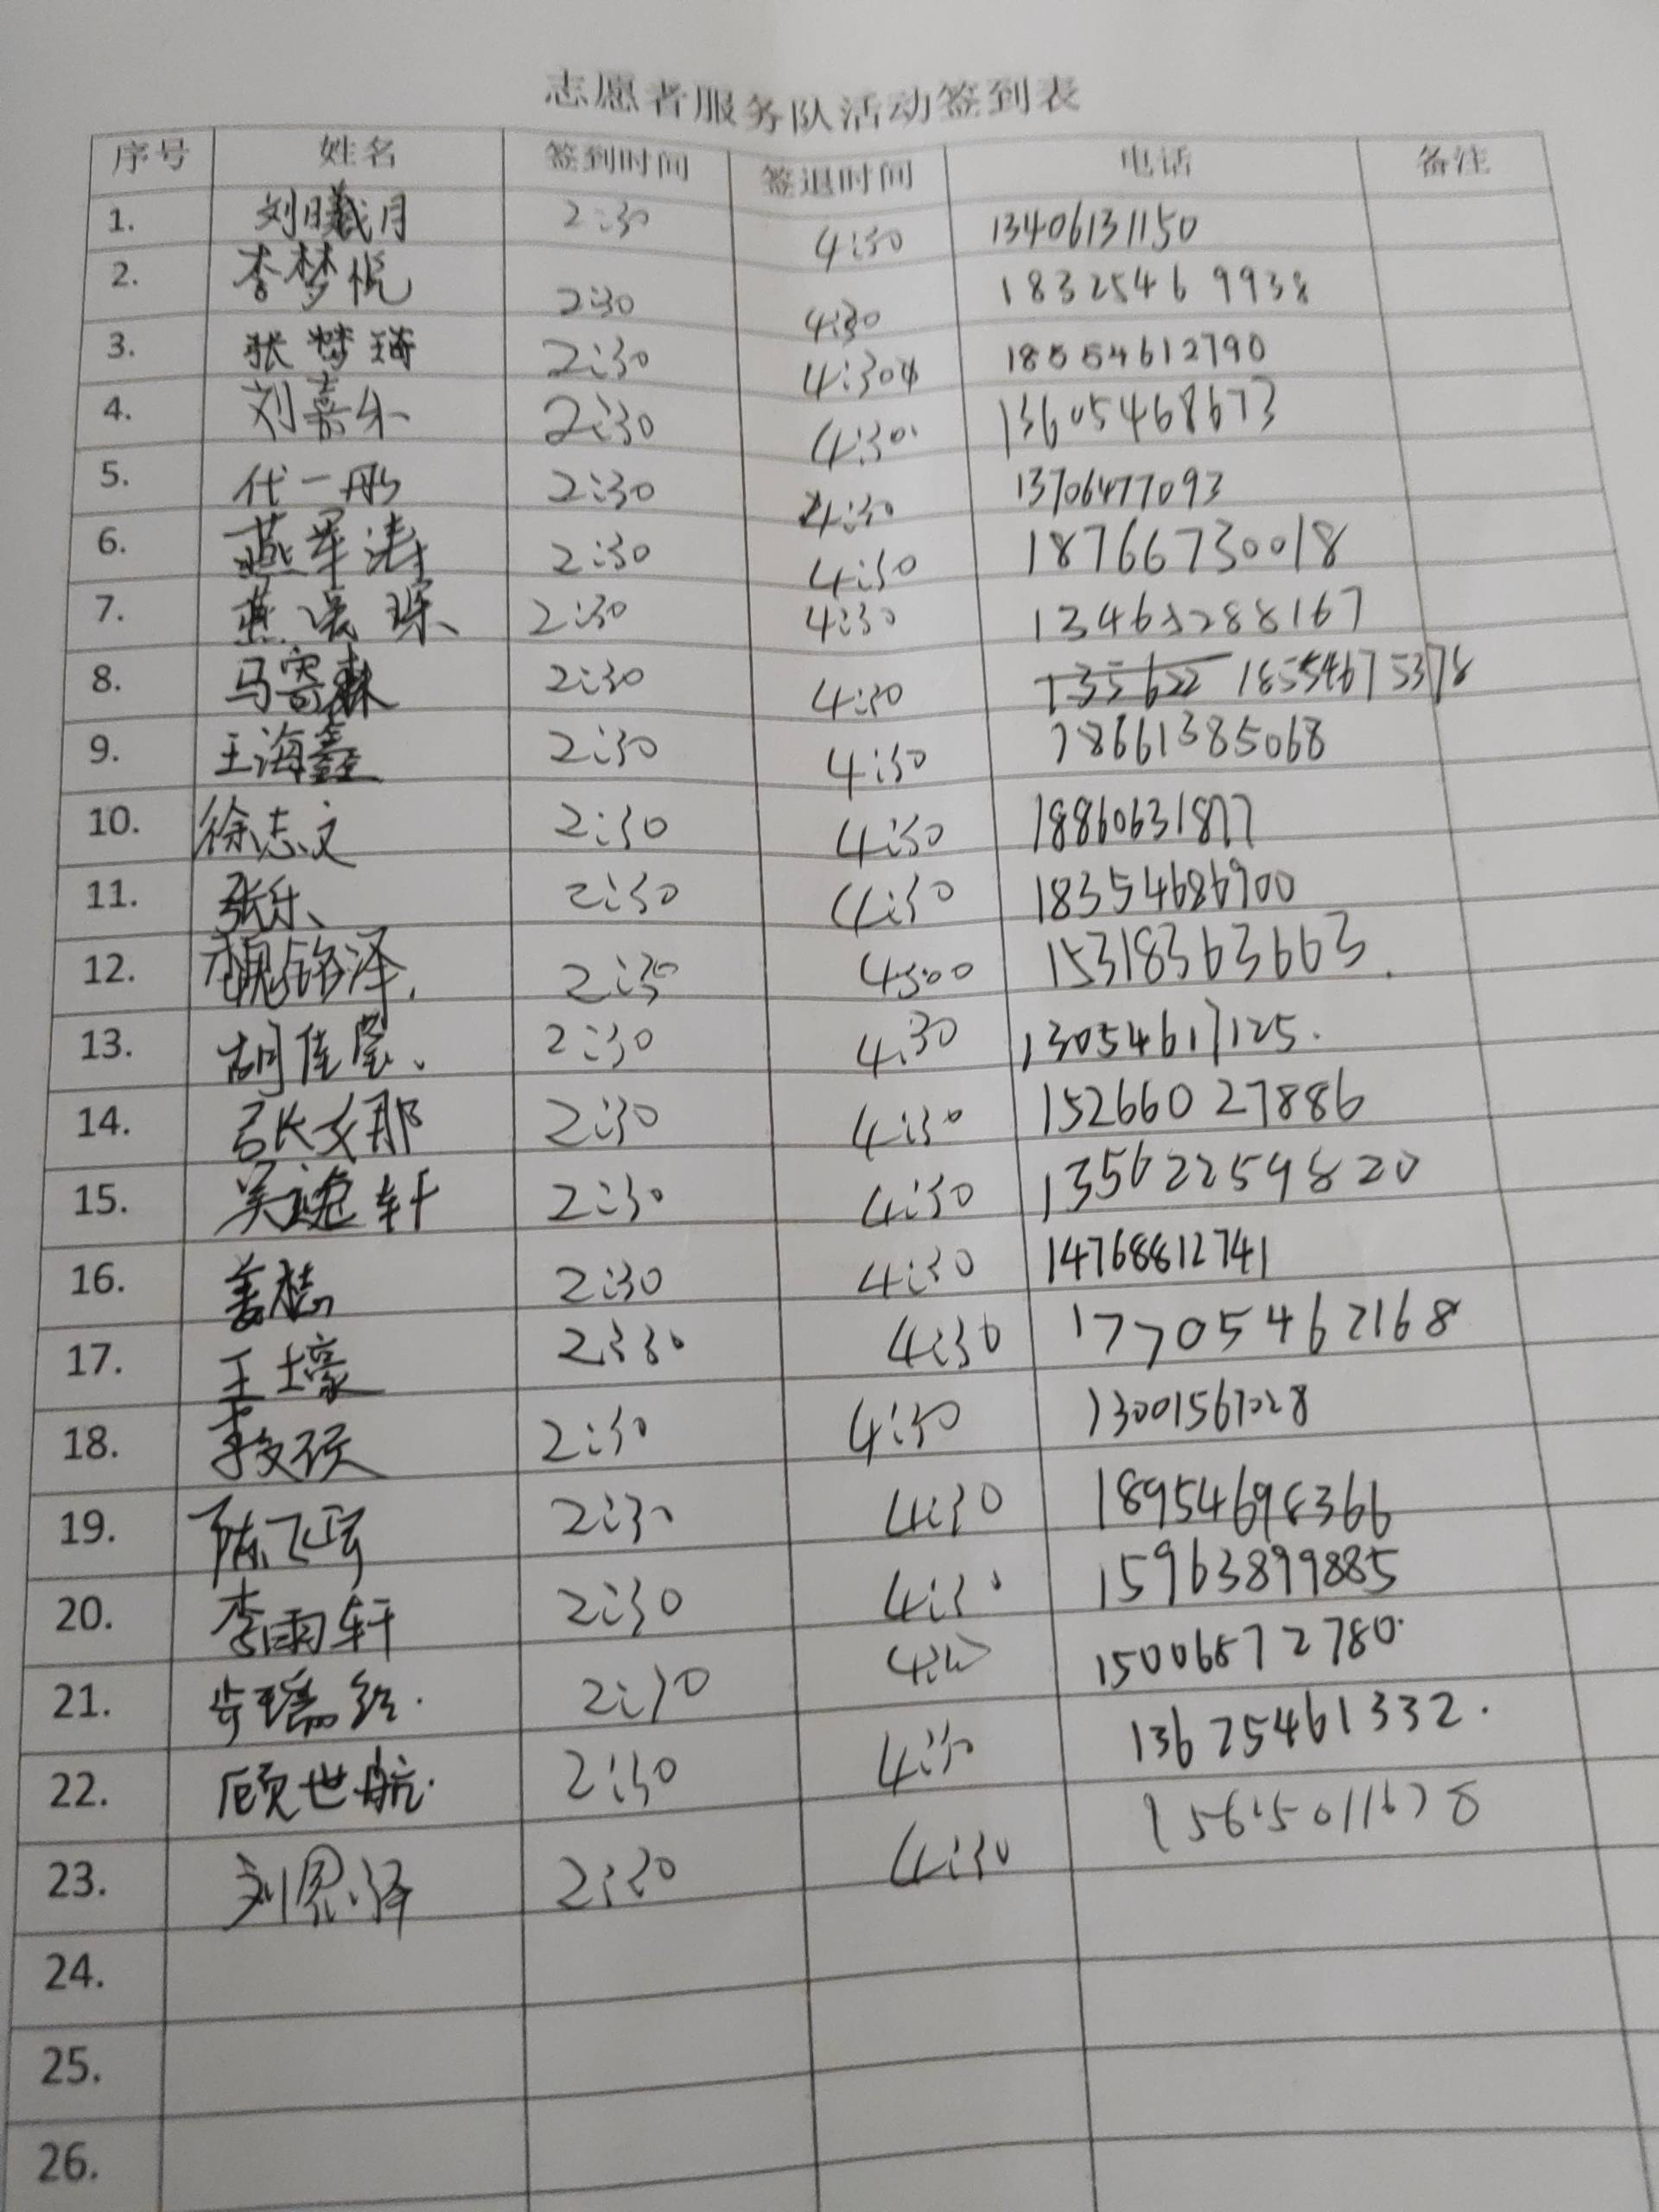 志愿者服务队活动签到表
序号 姓名 签到时间 签退时间 电话 备注
1. 刘曦月 2:30 4:30 13406131150
2. 李梦悦 2:30 4:30 18325469938
3. 张梦琦 2:30 4:30 18554612790
4. 刘嘉乐 2:30 4:30 13605468673
5. 代一彤 2:30 4:30 13706477093
6. 燕军涛 2:30 4:30 18766730018
7. 2:30 4:30
8. 2:30 4:30 135622 18554675378
9. 王海鑫 2:30 4:30 18661385068
10. 徐志文 2:30 4:30 18860631877
11. 张乐 2:30 4:30 18354686900
12. 魏铭泽 2:30 15318363663
13. 胡佳莹 2:30 4:30 13054617125
14. 张文那 2:30 4:30 15266027886
15. 吴逸轩 2:30 4:30 13562259820
16. 2:30 4:30 14768812741
17. 2:30 4:30 17705462168
18. 2:30 4:30 13001567028
19. 2:30 4:30 18954698366
20. 李雨轩 2:30 4:30 15963899885
21. 2:30 15006872780
22. 顾世航 2:30 4:30 13625461332
23. 刘恩泽 2:30 4:30 15615011678
24.
25.
26.